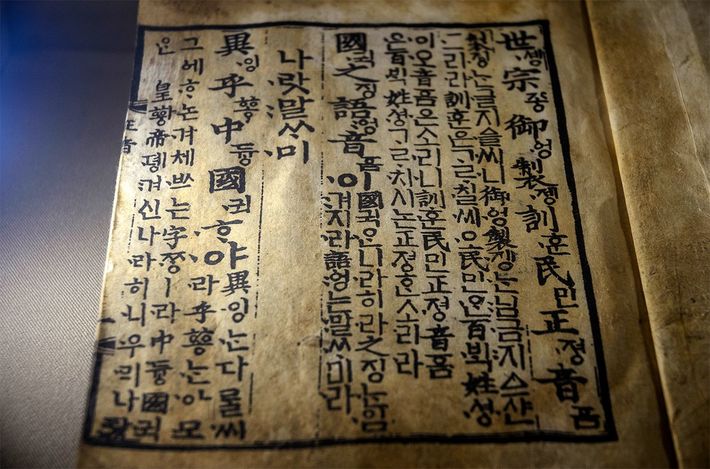 世솅宗종御ᅌᅥᆼ製졩訓훈民민正졍音ᅙᅳᆷ
製졩는글지ᅀᅳᆯ씨니御ᅌᅥᆼ製졩는님금지ᅀᅳ샨
그리라訓훈은ᄀᆞᄅᆞ칠씨오民민ᄋᆞᆫ百ᄇᆡᆨ姓셩
이오音ᅙᅳᆷ은소리니訓훈民민正졍音ᅙᅳᆷ
은百ᄇᆡᆨ姓셩ᄀᆞᄅᆞ치시논正졍ᄒᆞᆫ소리라
國귁之징語ᅌᅥᆼ音ᅙᅳᆷ이
國귁ᄋᆞᆫ나라히라之징는입
겨지라語ᅌᅥᆼ는말ᄊᆞ미라
나랏말ᄊᆞ미
異잉乎ᅘᅩᆼ中듕國귁ᄒᆞ야
異잉는다ᄅᆞᆯ씨
라乎ᅘᅩᆼ는아모
그ᅌᅦᄒᆞ논겨체ᄡᅳ는字ᄍᆞᆼㅣ라中듕國귁
ᄋᆞᆫ皇ᅘᅪᆼ帝뎽겨신나라히니우리나